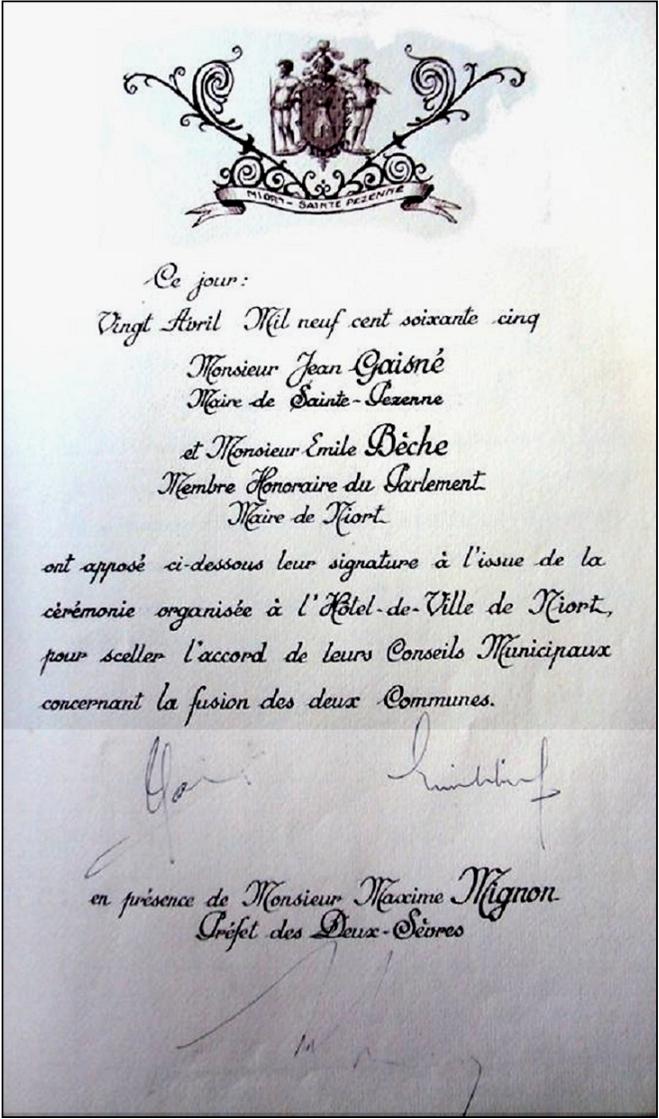 NIORT - SAINTE PEZENNE
Ce jour:
Vingt Avril Mil neuf cent soixante cinq
Monsieur Jean Gaisné
Maire de Sainte-Pezenne
et Monsieur Emile Bèche
Membre Honoraire du Parlement
Maire de Niort
ont apposé ci-dessous leur signature à l'issue de la
cérémonie organisée à l'Hôtel-de-Ville de Niort,
pour sceller l'accord de leurs Conseils Municipaux
concernant la fusion des deux Communes.
en présence de Monsieur Maxime Mignon
Préfet des Deux-Sèvres